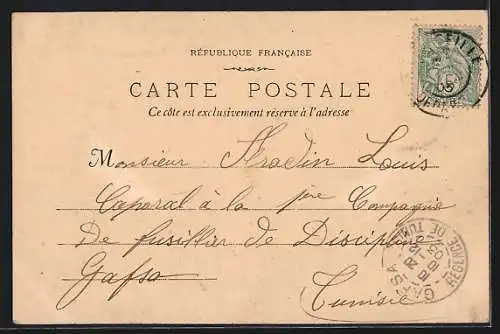 RÉPUBLIQUE FRANÇAISE
CARTE POSTALE
Ce côté est exclusivement réservé à l'adresse
Monsieur Louis
Caporal à la 1ère Compagnie
De fusilier de Discipline
Gafsa
Tunisie
RÉGENCE DE TUNIS
GAFSA